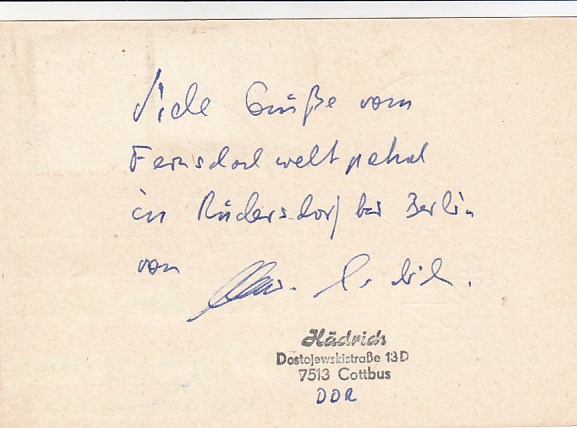 Viele Grüße vom
Fernschachweltpokal
in Rüdersdorf bei Berlin
von
Hädrich
Dostojewskistraße 13D
7513 Cottbus
DDR